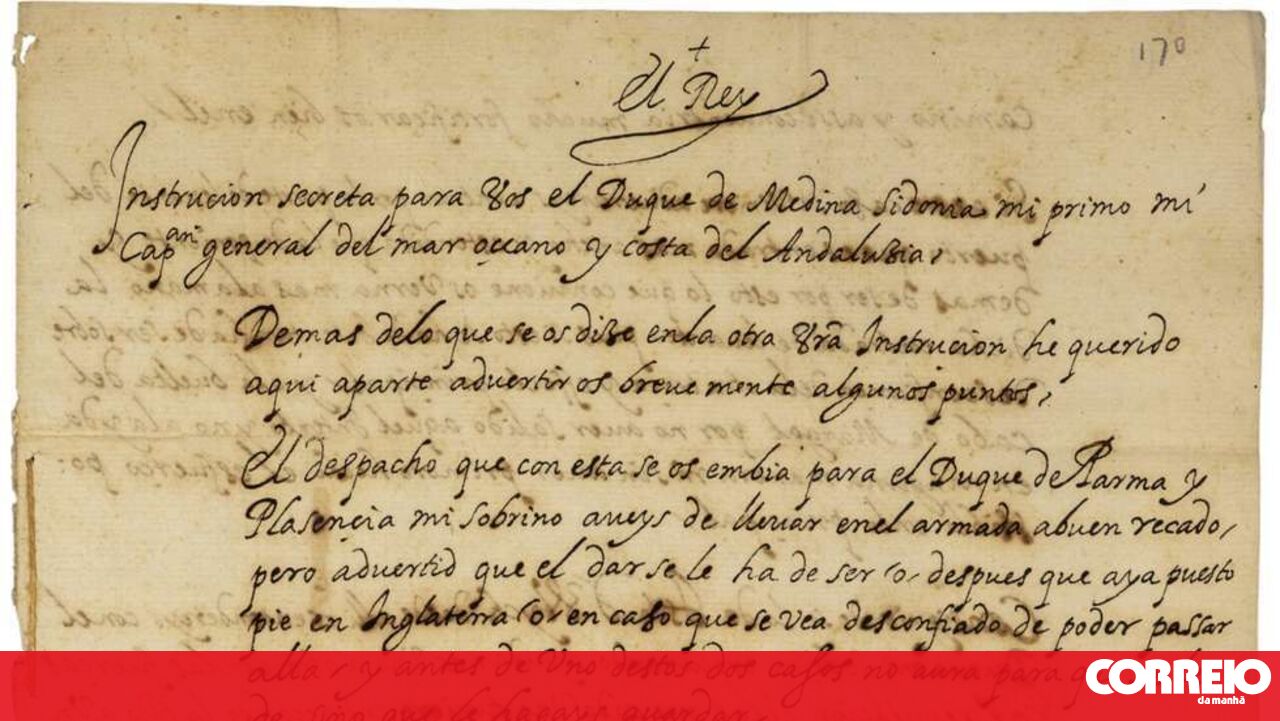 170
+
El Rey
Instrucion secreta para vos el Duque de Medina Sidonia mi primo mi
Cap.an general del mar oçeano y costa del Andaluzia,
Demas delo que se os dize enla otra vrã Instrucion he querido
aqui aparte advertir os breve mente algunos puntos,
El despacho que con esta se os embia para el Duque de Parma y
Plasençia mi sobrino aveys de llevar enel armada abuen recado,
pero advertid que el dar se le ha de ser, o, despues que aya puesto
pie en Inglaterra, o, en caso que se vea desconfiado de poder passar
allar y antes de Uno destos dos casos no aura para q
de sino que le hagays guardar.
CORREIO
da manhã